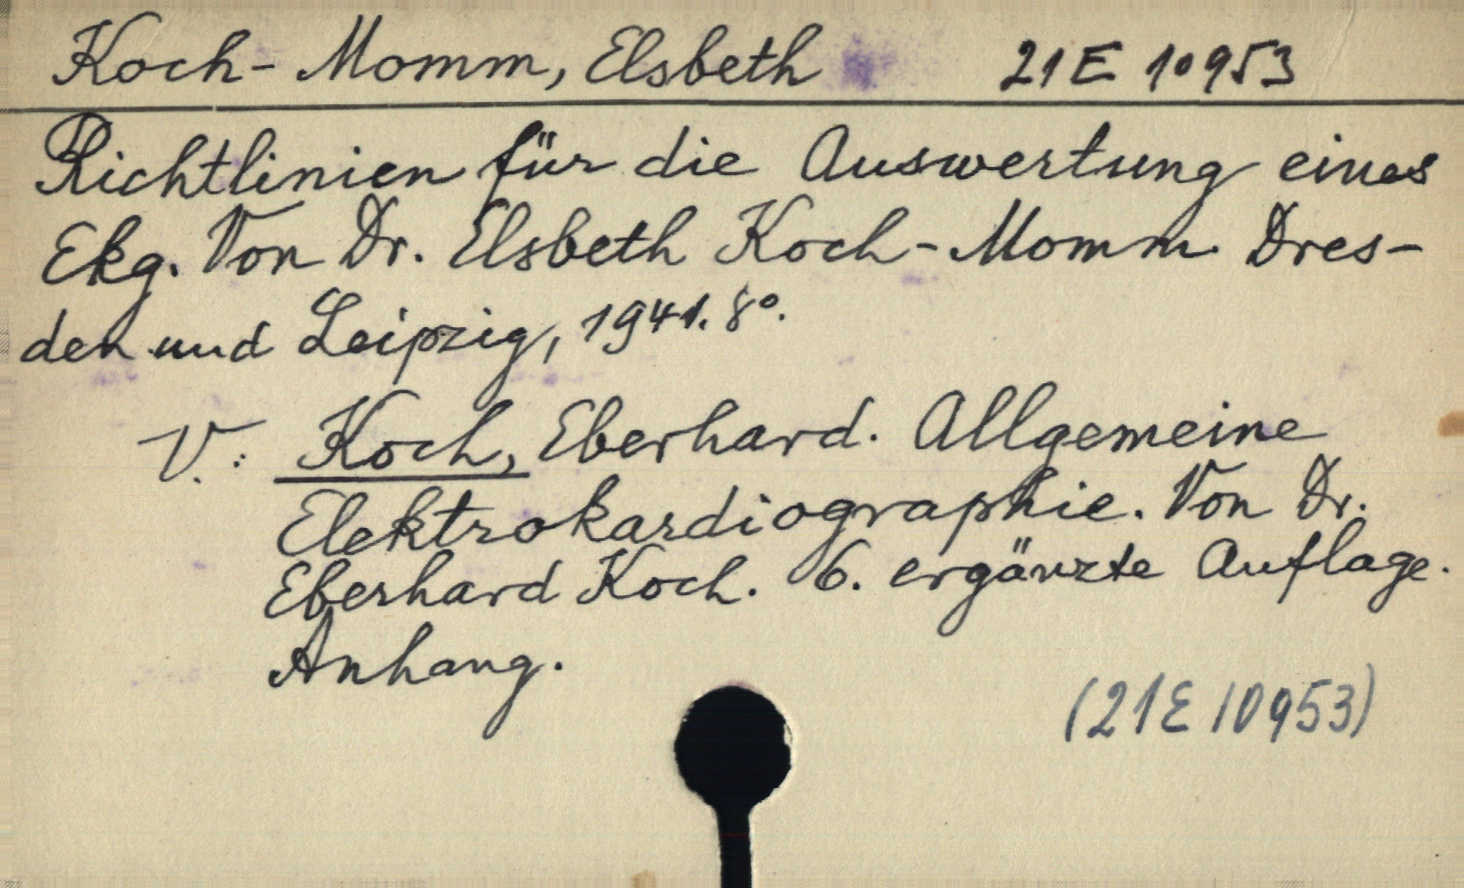 Koch-Momm, Elsbeth 21 E 10953
Richtlinien für die Auswertung eines
Ekg. Von Dr. Elsbeth Koch-Momm. Dres-
den und Leipzig, 1941. 8°.
V.: Koch, Eberhard. Allgemeine
Elektrokardiographie. Von Dr.
Eberhard Koch. 6. ergänzte Auflage.
Anhang.
(21 E 10953)